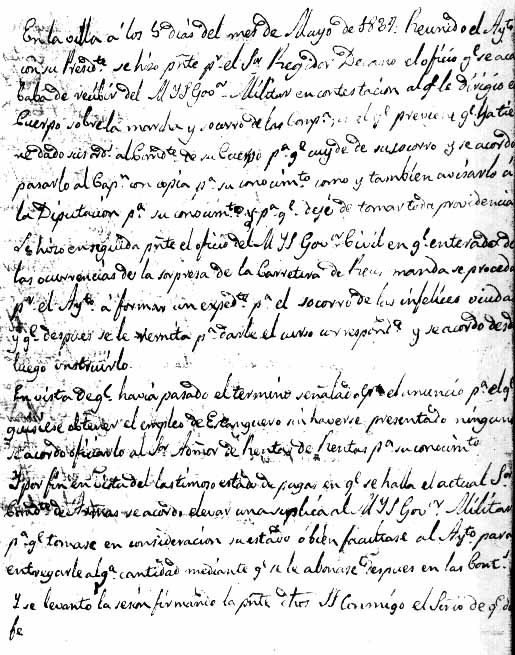 En la villa á los 5 dias del mes de Mayo de 1837. Reunido el Ayto
con su Presdte se hizo pnte pr el Sor Regidor Decano el oficio qe se aca
baba de recibir del M Y S Govor Militar en contestacion al qe le dirigio el
Cuerpo sobre la marcha y socorro de las Compas, en el ql previene qe ya tie
ne dado sus ords al Comdte de su Cuerpo pa qe cuyde de su socorro y se acordo
pasarlo al Capn con copia pa su conocimto como y tambien avisarlo á
la Diputacion pa su conocimto y pa qe deje de tomar toda providencia
Se hizo en seguida pnte el oficio del M Y S Govor Civil en qe enterado de
las ocurrencias de la sorpresa de la Carretera de Reus manda se proceda
pr el Ayto á formar un expedte pa el socorro de las infelices viudas
y qe despues se le remita pa darle el curso correspondte y se acordo desde
luego instruirlo.
En vista de qe havia pasado el termino señalado pr el anuncio pa el qe
quisiese obtener el empleo de Estanquero sin haverse presentado ninguno
se acordo oficiarlo al Sor Admor de Rentas pa su conocimto
Y por fin en vista del lastimoso estado de pagas en qe se halla el actual Sor
Comdte de Armas se acordo elevar una suplica al M Y S Govor Militar
pa qe tomase en consideracion su estado o bien facultase al Ayto para
entregarle alga cantidad mediante qe se le abonase despues en las Conts
Y se levantó la sesion firmando la pnte dhos SS conmigo el Srio de qe doy
fe